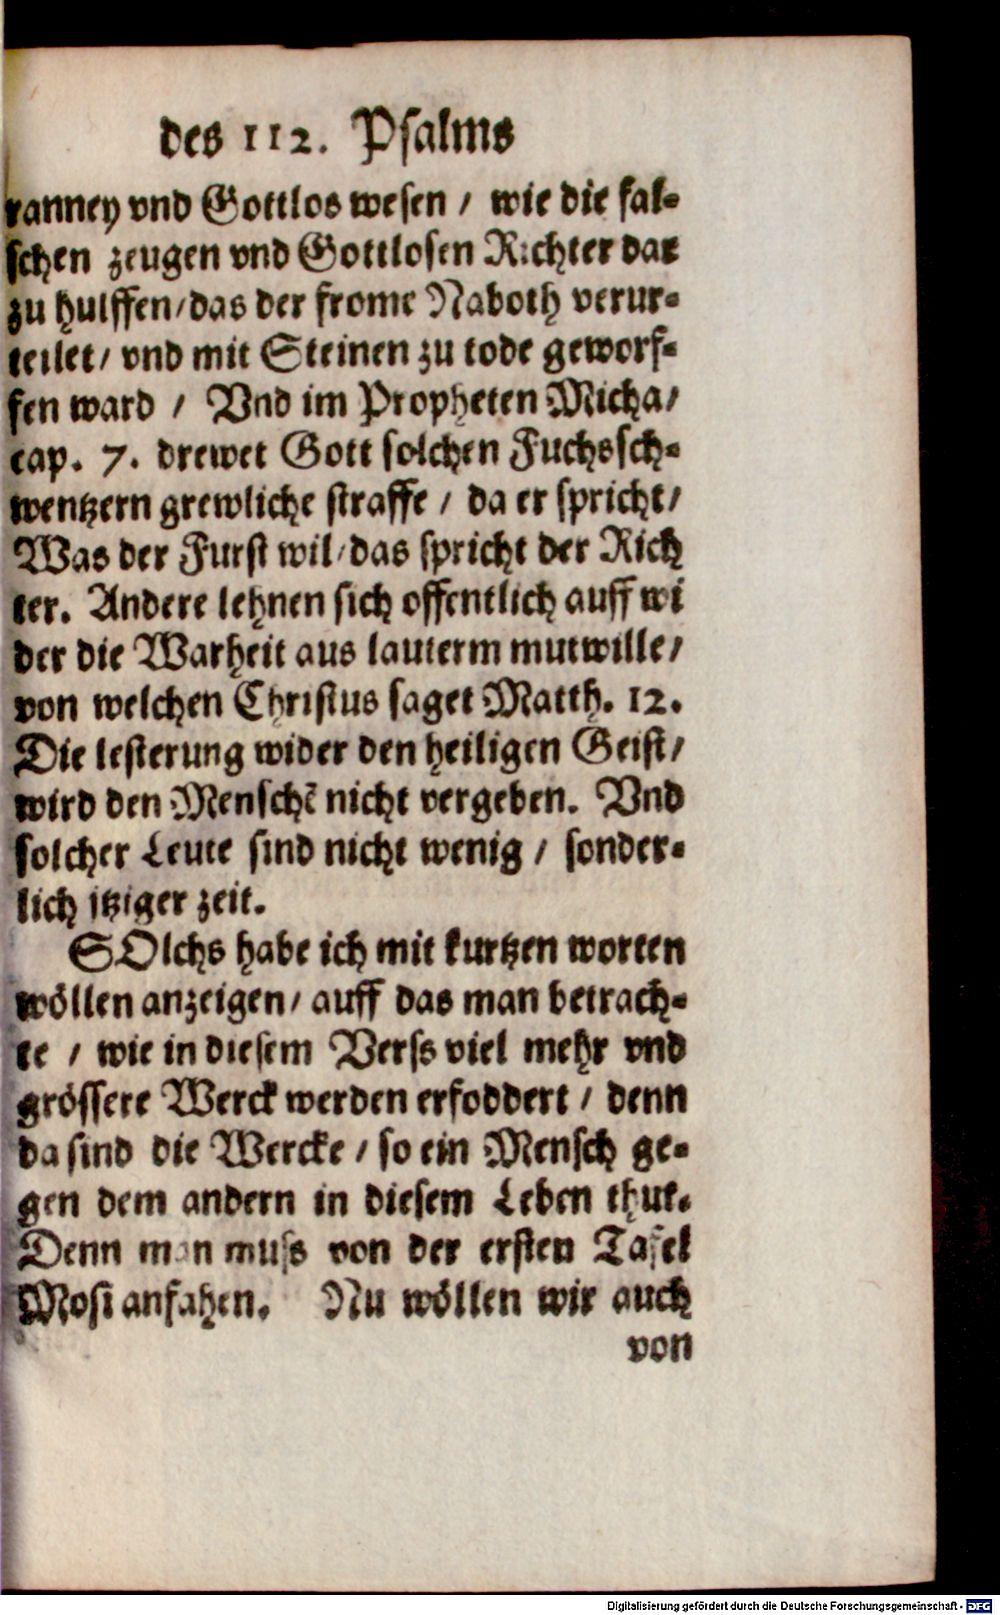 des 112. Psalms
ranney vnd Gottlos wesen / wie die fal-
schen zeugen vnd Gottlosen Richter dar
zu hulffen / das der frome Naboth verur-
teilet / vnd mit Steinen zu tode geworf-
fen ward / Vnd im Propheten Micha /
cap. 7. drewet Gott solchen Fuchssch-
wentzern grewliche straffe / da er spricht /
Was der Furst wil / das spricht der Rich
ter. Andere lehnen sich offentlich auff wi
der die Warheit aus lauterm mutwille /
von welchen Christus saget Matth. 12.
Die lesterung wider den heiligen Geist /
wird den Menschē nicht vergeben. Vnd
solcher Leute sind nicht wenig / sonder-
lich itziger zeit.
SOlchs habe ich mit kurtzen worten
wöllen anzeigen / auff das man betrach-
te / wie in diesem Verss viel mehr vnd
grössere Werck werden erfoddert / denn
da sind die Wercke / so ein Mensch ge-
gen dem andern in diesem Leben thut.
Denn man muss von der ersten Tafel
Mosi anfahen. Nu wöllen wir auch
von
Digitalisierung gefördert durch die Deutsche Forschungsgemeinschaft - DFG